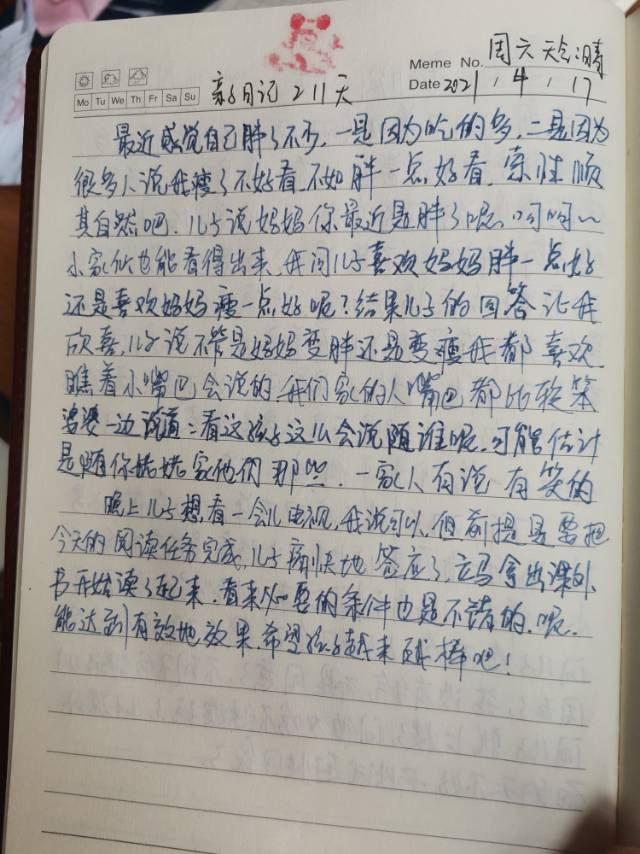 周六 天气晴
Meme No.
Date 2021 . 4 . 17
Mo Tu We Th Fr Sa Su
亲子日记 211天
最近感觉自己胖了不少，一是因为吃的多，二是因为
很多人说我瘦了不好看，不如胖一点好看，索性顺
其自然吧，儿子说妈妈你最近是胖了呢，呵呵~
小家伙也能看得出来，我问儿子喜欢妈妈胖一点好
还是喜欢妈妈瘦一点好呢？结果儿子的回答让我
欣喜，儿子说不管是妈妈变胖还是变瘦我都喜欢。
瞧着小嘴巴会说的，我们家的人嘴巴都比较笨
婆婆一边说道：看这孩子这么会说随谁呢，可能估计
是随你姥姥家他们那些，一家人有说有笑的
晚上儿子想看一会儿电视，我说可以，但前提是要把
今天的阅读任务完成，儿子痛快地答应了，立马拿出课外
书开始读了起来，看来必要的条件也是不错的，呢，
能达到有效地效果，希望孩子越来越棒吧！